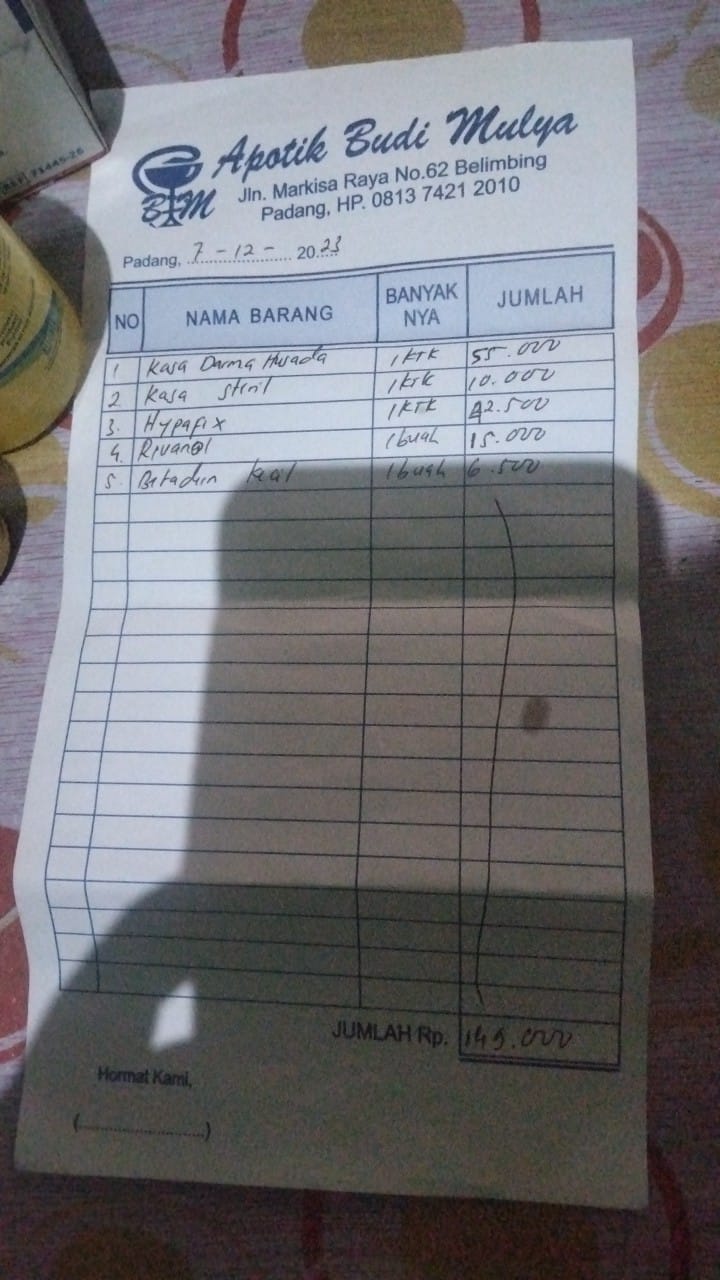 (REF) 71445-26
BM
Apotik Budi Mulya
Jln. Markisa Raya No.62 Belimbing
Padang, HP. 0813 7421 2010
Padang, 7 - 12 - 2023
NO NAMA BARANG BANYAK NYA JUMLAH
1 Kasa Darma Husada 1 KTK 55.000
2. Kasa steril 1 KTK 10.000
3. Hypafix 1 KTK 42.500
4. Rivanol 1 buah 15.000
5. Betadin kecil 1 buah 6.500
JUMLAH Rp. 149.000
Hormat Kami,
(....................)